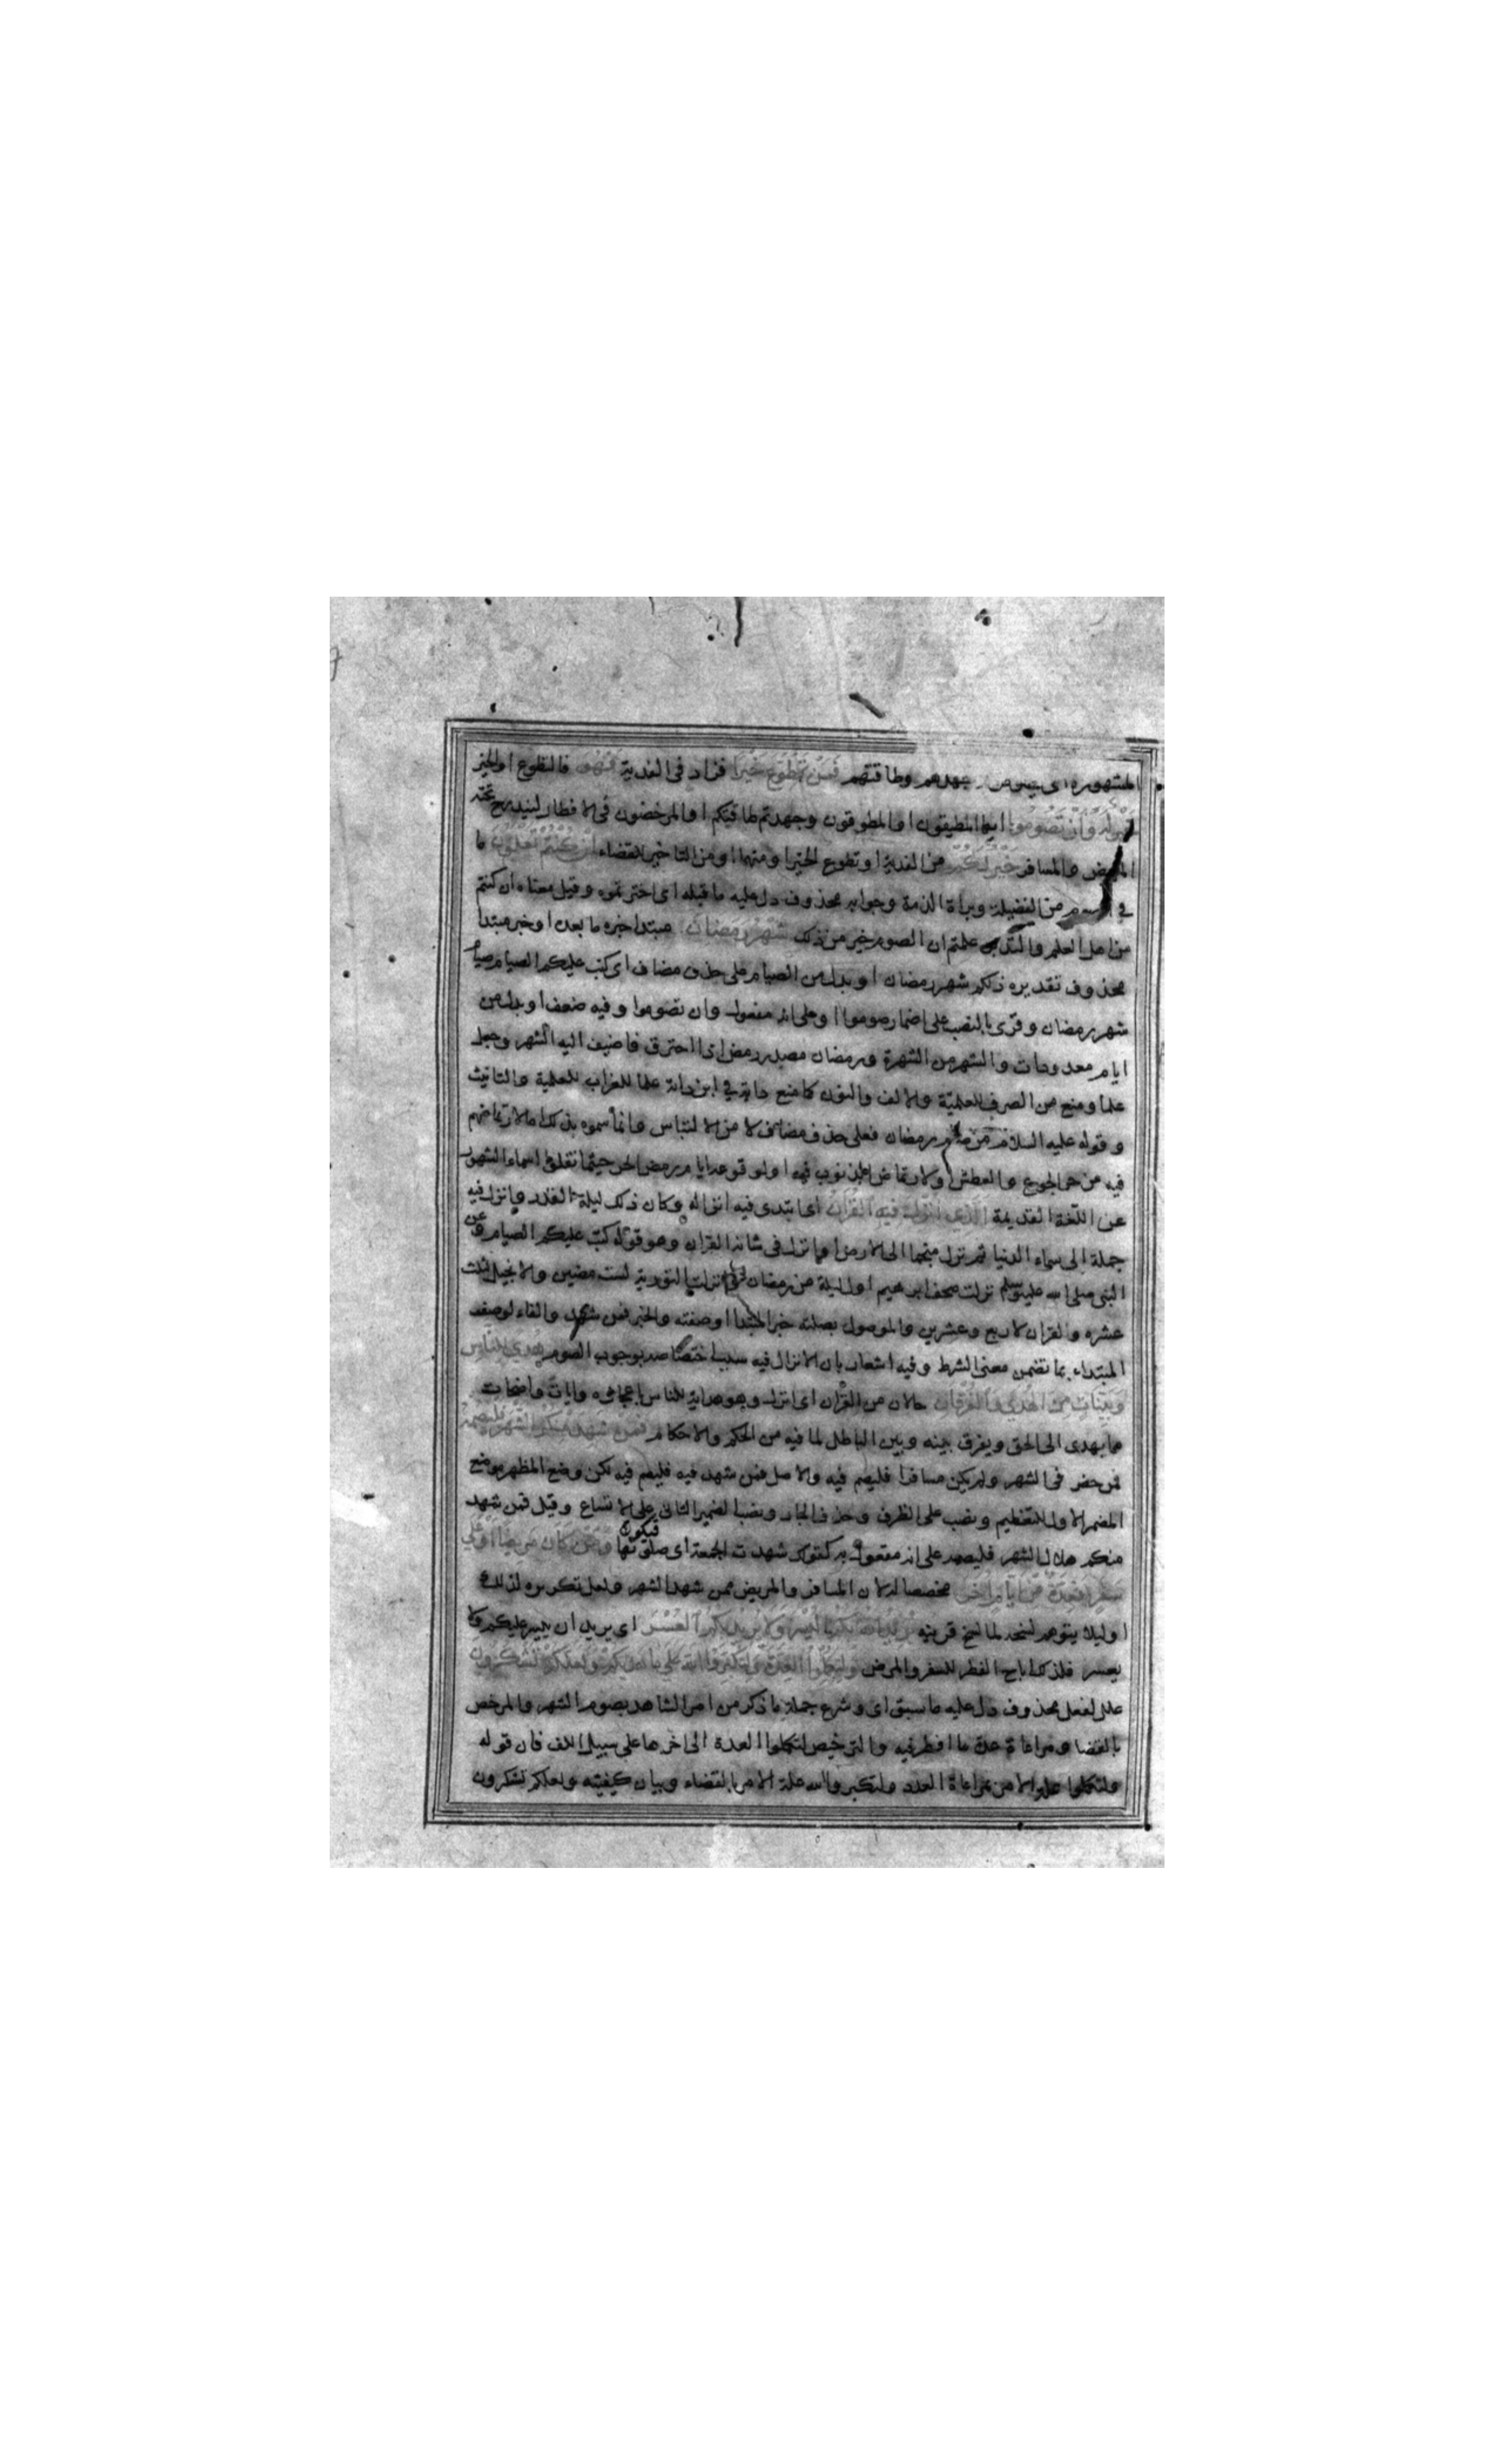 المشهورة اى يصومن جهدهم وطاقتهم فَمَنْ تَطَوَّعَ خَيْرًا فزاد فى الفدية فَهُوَ فالتطوع او الخير
لَهُ وَاَنْ تَصُومُوا ايها المطيقون او المطوقون وجهدتم طاقتكم او المرخصون فى الافطار ليندرج تحته
المريض والمسافر خَيْرٌ لَكُمْ من الفدية او تطوع الخير او منهما او من التاخير للقضاء اِنْ كُنْتُمْ تَعْلَمُونَ ما
في الصوم من الفضيلة وبراة الذمة وجوابه محذوف دل عليه ما قبله اى اخترتموه وقيل معناه ان كنتم
من اهل العلم والتدبر علمتم ان الصوم خير من ذلك شَهْرُ رَمَضَانَ مبتدا خبره ما بعده او خبر مبتدا
محذوف تقديره ذلكم شهر رمضان او بدل من الصيام على حذف مضاف اى كتب عليكم الصيام صيام
شهر رمضان وقرى بالنصب على اضمار صوموا او على انه مفعول وان تصوموا وفيه ضعف او بدل من
ايام معدودات والشهر من الشهرة ورمضان مصدر رمض اذا احترق فاضيف اليه الشهر وجعل
علما ومنع من الصرف للعلمية والالف والنون كما منع داية في ابن داية علما للغراب للعلمية والتانيث
وقوله عليه السلام من صام رمضان فعلى حذف مضاف لا من الالتباس وانما سموه بذلك اما لارتماضهم
فيه من حر الجوع والعطش او لارتماض الذنوب فيه او لوقوعه ايام رمض الحر حيثما نقلوا اسماء الشهور
عن اللغة القديمة الَّذِى اُنْزِلَ فِيهِ الْقُرْآنُ اى ابتدى فيه انزاله وكان ذلك ليلة القدر وانزل فيه
جملة الى سماء الدنيا ثم نزل منجما الى الارض او انزل فى شانه القران وهو قوله كتب عليكم الصيام وعن
النبى صلى الله عليه وسلم نزلت صحف ابرهيم اول ليلة من رمضان وانزلت التورية لست مضين والانجيل لثلث
عشرة والقران لاربع وعشرين والموصول بصلته خبر المبتدا او صفته والخبر فمن شهد والفاء لوصف
المبتداء بما تضمن معنى الشرط وفيه اشعار بان الانزال فيه سبب اختصاصه بوجوب الصوم هُدًى لِلنَّاسِ
وَبَيِّنَاتٍ مِنَ الْهُدَى وَالْفُرْقَانِ حالان من القران اى انزل وهو هداية للناس باعجازه وايات واضحات
مما يهدى الى الحق ويفرق بينه وبين الباطل لما فيه من الحكم والاحكام فَمَنْ شَهِدَ مِنْكُمُ الشَّهْرَ فَلْيَصُمْهُ
فمن حضر فى الشهر ولم يكن مسافرا فليصم فيه والاصل فمن شهد فيه فليصم فيه لكن وضع المظهر موضع
المضمر الاول للتعظيم ونصب على الظرف وحذف الجار ونصب الضمير الثانى على الاتساع وقيل فمن شهد
منكم هلال الشهر فليصمه على انه مفعول به كقولك شهدت الجمعة اى صلوتها فيكون وَمَنْ كَانَ مَرِيضًا اَوْ عَلَى
سَفَرٍ فَعِدَّةٌ مِنْ اَيَّامٍ اُخَرَ مخصصا له لان المسافر والمريض ممن شهد الشهر ولعل تكريره لذلك
اوليلا يتوهم نسخه لما نسخ قرينه يُرِيدُ اللهُ بِكُمُ الْيُسْرَ وَلَا يُرِيدُ بِكُمُ الْعُسْرَ اى يريد ان ييسر عليكم ولا
يعسر فلذلك اباح الفطر للسفر والمرض وَلِتُكْمِلُوا الْعِدَّةَ وَلِتُكَبِّرُوا اللهَ عَلَى مَا هَدَيكُمْ وَلَعَلَّكُمْ تَشْكُرُونَ
علل لفعل محذوف دل عليه ما سبق اى وشرع جملة ما ذكر من امر الشاهد بصوم الشهر والمرخص
بالقضا ومراعاة عدة ما افطر فيه والترخيص لتكملوا العدة الى اخرها على سبيل اللف فان قوله
ولتكملوا علة الامر بمراعاة العدد ولتكبروا الله علة الامر بالقضاء وبيان كيفيته ولعلكم تشكرون